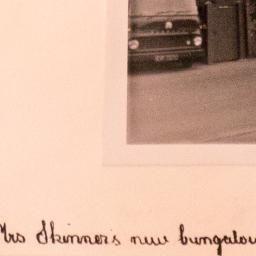 Mrs Skinner's new bungalow